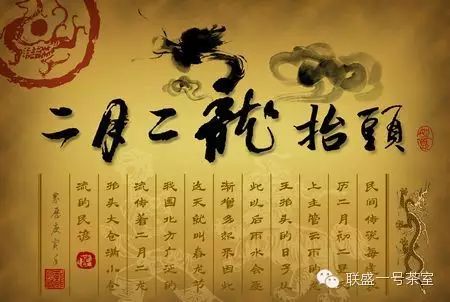 二月二龍抬頭
民间传说每
历二月初二是
上主管云雨的
王抬头的日子从
此以后雨水会逐
渐增多起来因此
这天就叫春龙节
我国北方广泛的
流传着二月二龙
抬头大仓满小仓
流的民谚
联盛一号茶室